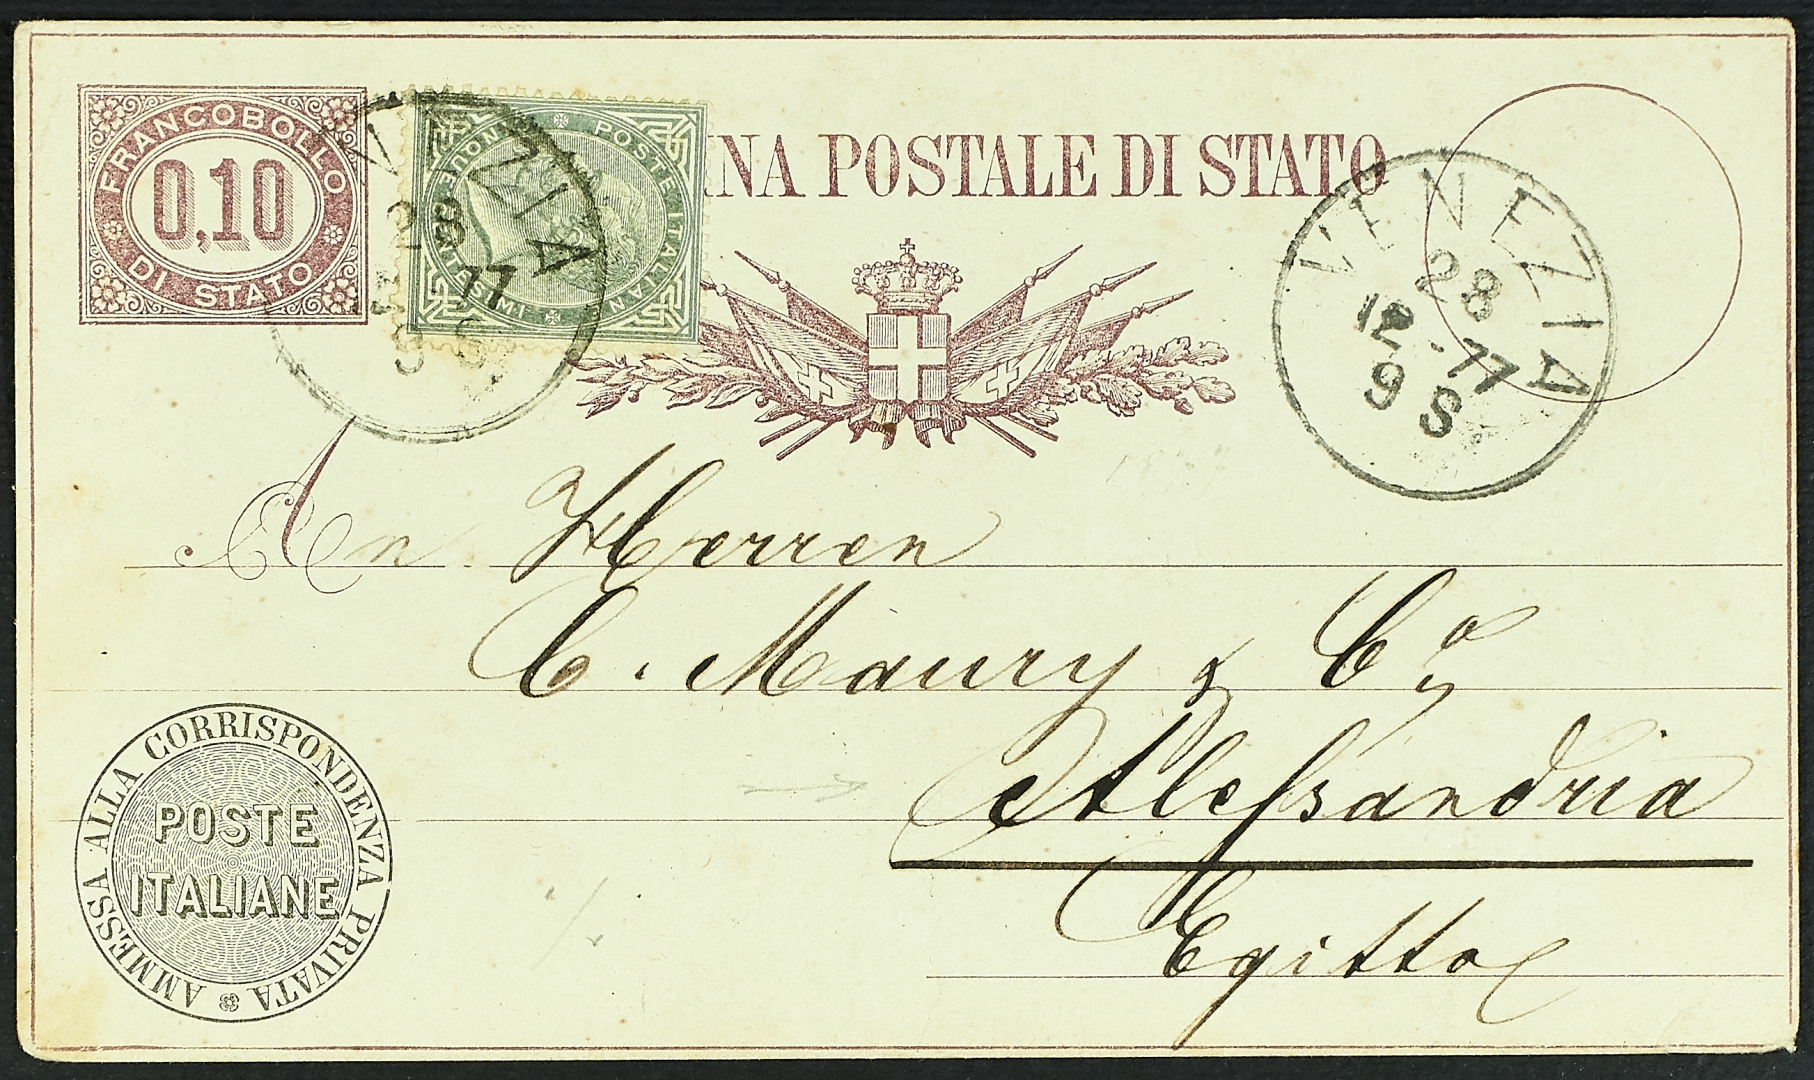 FRANCOBOLLO
0,10
DI STATO
POSTE ITALIANE
CINQUE CENTESIMI
INA POSTALE DI STATO
VENEZIA
28
77
9 S
VENEZIA
28
12-77
9 S
An Herren
C. Maury & Co
Alessandria
Egitto
AMMESSA ALLA CORRISPONDENZA PRIVATA
POSTE
ITALIANE